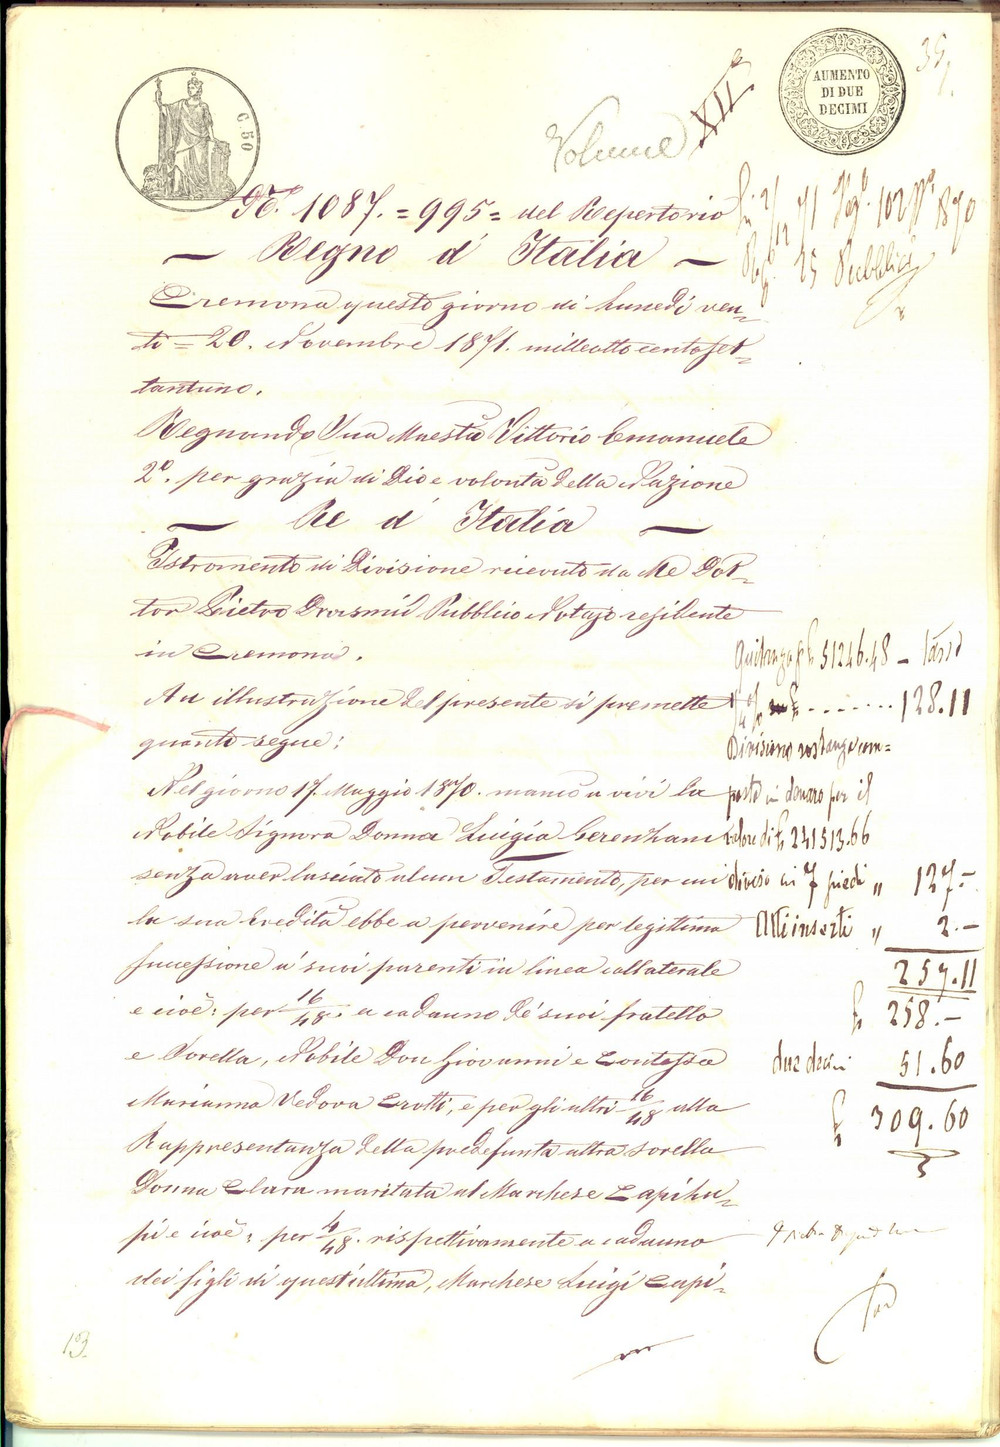 C. 50
AUMENTO
DI DUE
DECIMI
Volume XII°
N. 1087. = 995 = del Repertorio
Regno d'Italia
Cremona questo giorno di lunedì ven-
ti = 20. Novembre 1871. milleottocentoset-
tantuno.
Regnando Sua Maestà Vittorio Emanuele
2°. per grazia di Dio e volontà della Nazione
Re d'Italia
Istromento di Divisione ricevuto da Me Dot-
tor Pietro Pubblico Notajo residente
in Cremona.
Au illustrazione del presente si premette
quanto segue:
Nel giorno 17. Maggio 1870. mancò a vivi la
Nobile Signora Donna Luigia
senza aver lasciato alcun Testamento, per cui
la sua Eredità ebbe a pervenire per legittima
successione a' suoi parenti in linea collaterale
e cioè: per 16/48. a cadauno de' suoi fratello
e Sorella, Nobile Don Giovanni e Contessa
Marianna Vedova Crotti, e per gli altri 16/48 alla
Rappresentanza della predefunta altra sorella
Donna Clara maritata al Marchese Capilu-
pi e cioè: per 4/48. rispettivamente a cadauno
dei figli di quest'ultima, Marchese Luigi Capi-
71 102 1870
25 Pubblici
Quitanza 51246.48 - tassa
128.11
Divisione sostanza com=
posta in denaro per il
valore di £ 241513.66
diviso in 7 " 127.-
Atti inserti " 2.-
257.11
£ 258.-
due decimi 51.60
£ 309.60
13